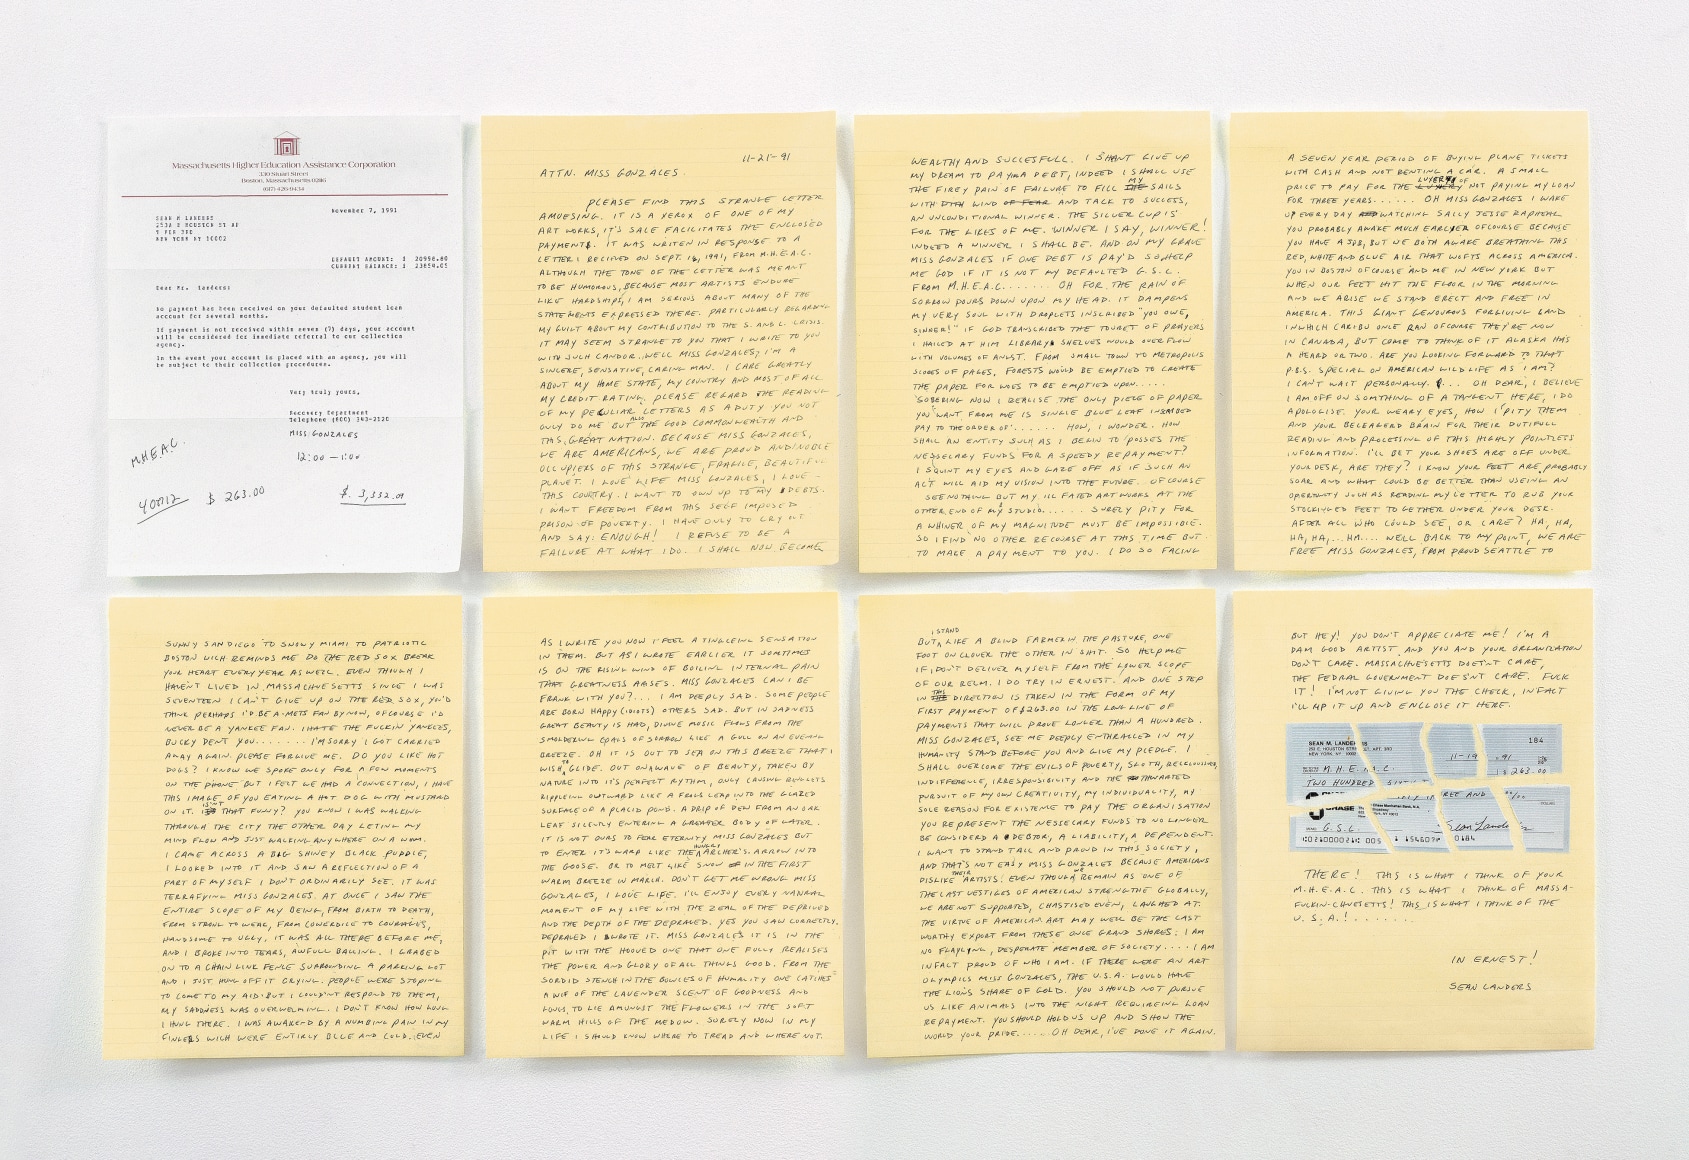 Massachusetts Higher Education Assistance Corporation
330 Stuart Street
Boston, Massachusetts 02116
(617) 426-9434
November 7, 1991
SEAN M LANDERS
NEW YORK NY 10002
DEFAULT AMOUNT: $ 20998.80
CURRENT BALANCE: $
Dear Mr. Landers:
No payment has been received on your defaulted student loan
account for several months.
If payment is not received within seven (7) days, your account
will be considered for immediate referral to our collection
agency.
In the event your account is placed with an agency, you will
be subject to their collection procedures.
Very truly yours,
Recovery Department
Telephone (800)
MISS GONZALES
12:00 — 1:00
M.H.E.A.C.
$ 263.00
$. 3,332.01
11-21-91
ATTN. MISS GONZALES.
PLEASE FIND THIS STRANGE LETTER
AMUESING. IT IS A XEROX OF ONE OF MY
ART WORKS, IT'S SALE FACILITATES THE ENCLOSED
PAYMENTS. IT WAS WRITEN IN RESPONSE TO A
LETTER I RECIVED ON SEPT. 16, 1991, FROM M.H.E.A.C.
ALTHOUGH THE TONE OF THE LETTER WAS MEANT
TO BE HUMOROUS, BECAUSE MOST ARTISTS ENDURE
LIKE HARDSHIPS, I AM SERIOUS ABOUT MANY OF THE
STATEMENTS EXPRESSED THERE. PARTICULARLY REGARDING
MY GUILT ABOUT MY CONTRIBUTION TO THE S. AND L. CRISIS.
IT MAY SEEM STRANGE TO YOU THAT I WRITE TO YOU
WITH SUCH CANDOR. WELL MISS GONZALES, I'M A
SINCERE, SENSATIVE, CARING MAN. I CARE GREATLY
ABOUT MY HOME STATE, MY COUNTRY AND MOST OF ALL
MY CREDIT RATING. PLEASE REGARD THE READING
OF MY PECULIAR LETTERS AS A DUTY YOU NOT
ONLY DO ME BUT ALSO THE GOOD COMMONWEALTH AND
THIS GREAT NATION. BECAUSE MISS GONZALES,
WE ARE AMERICANS, WE ARE PROUD AND NOBLE
OCCUPIERS OF THIS STRANGE, FRAGILE, BEAUTIFUL
PLANET. I LOVE LIFE MISS GONZALES, I LOVE
THIS COUNTRY. I WANT TO OWN UP TO MY DEBTS.
I WANT FREEDOM FROM THIS SELF IMPOSED
PRISON OF POVERTY. I HAVE ONLY TO CRY OUT
AND SAY: ENOUGH! I REFUSE TO BE A
FAILURE AT WHAT I DO. I SHALL NOW BECOME
WEALTHY AND SUCCESFULL. I SHANT GIVE UP
MY DREAM TO PAY MA DEBT, INDEED I SHALL USE
THE FIREY PAIN OF FAILURE TO FILL THE MY SAILS
WITH WIND OF FEAR AND TALK TO SUCCESS,
AN UNCONDITIONAL WINNER. THE SILVER CUP IS
FOR THE LIKES OF ME. WINNER I SAY, WINNER!
INDEED A WINNER I SHALL BE. AND ON MY GRAVE
MISS GONZALES IF ONE DEBT IS PAY'D SO HELP
ME GOD IF IT IS NOT MY DEFAULTED G.S.L.
FROM M.H.E.A.C....... OH FOR THE RAIN OF
SORROW POURS DOWN UPON MY HEAD. IT DAMPENS
MY VERY SOUL WITH DROPLETS INSCRIBED "YOU OWE,
SINNER!" IF GOD TRANSCRIBED THE TOURET OF PRAYERS
I HAILED AT HIM LIBRARY SHELVES WOULD OVERFLOW
WITH VOLUMES OF ANGST. FROM SMALL TOWN TO METROPOLIS
SCORES OF PAGES, FORESTS WOULD BE EMPTIED TO CREATE
THE PAPER FOR WOES TO BE EMPTIED UPON.....
SOBERING NOW I REALISE THE ONLY PIECE OF PAPER
YOU WANT FROM ME IS SINGLE BLUE LEAF INSCRIBED
PAY TO THE ORDER OF....... HOW, I WONDER. HOW
SHALL AN ENTITY SUCH AS I BEGIN TO POSSES THE
NESSECARY FUNDS FOR A SPEEDY REPAYMENT?
I SQUINT MY EYES AND GAZE OFF AS IF SUCH AN
ACT WILL AID MY VISION INTO THE FUTURE. OF COURSE
I SEE NOTHING BUT MY ILL FATED ART WORKS AT THE
OTHER END OF MY STUDIO....... SURELY PITY FOR
A WHINER OF MY MAGNITUDE MUST BE IMPOSSIBLE.
SO I FIND NO OTHER RECOURSE AT THIS TIME BUT
TO MAKE A PAYMENT TO YOU. I DO SO FACING
A SEVEN YEAR PERIOD OF BUYING PLANE TICKETS
WITH CASH AND NOT RENTING A CAR. A SMALL
PRICE TO PAY FOR THE LUXERY OF NOT PAYING MY LOAN
FOR THREE YEARS...... OH MISS GONZALES I WAKE
UP EVERY DAY WATCHING SALLY JESSE RAPHEAL
YOU PROBABLY AWAKE MUCH EARLYER OFCOURSE BECAUSE
YOU HAVE A JOB, BUT WE BOTH AWAKE BREATHING THIS
RED, WHITE AND BLUE AIR THAT WOFTS ACROSS AMERICA.
YOU IN BOSTON OFCOURSE AND ME IN NEW YORK BUT
WHEN OUR FEET HIT THE FLOOR IN THE MORNING
AND WE ARISE WE STAND ERECT AND FREE IN
AMERICA. THIS GIANT GENOUROUS FORGIVING LAND
IN WHICH CARIBU ONCE RAN OFCOURSE THEY'RE NOW
IN CANADA, BUT COME TO THINK OF IT ALASKA HAS
A HEARD OR TWO. ARE YOU LOOKING FORWARD TO THAT
P.B.S. SPECIAL ON AMERICAN WILDLIFE AS I AM?
I CAN'T WAIT PERSONALLY.... OH DEAR, I BELIEVE
I AM OFF ON SOMTHING OF A TANGENT HERE, I DO
APOLOGISE. YOUR WEARY EYES, HOW I PITY THEM
AND YOUR BELEAGERED BRAIN FOR THEIR DUTIFULL
READING AND PROCESSING OF THIS HIGHLY POINTLESS
INFORMATION. I'LL BET YOUR SHOES ARE OFF UNDER
YOUR DESK, ARE THEY? I KNOW YOUR FEET ARE PROBABLY
SOAR AND WHAT COULD BE BETTER THAN USEING AN
OPERTUNITY SUCH AS READING MY LETTER TO RUB YOUR
STOCKINGED FEET TOGETHER UNDER YOUR DESK.
AFTER ALL WHO COULD SEE, OR CARE? HA, HA,
HA, HA,... HA.... WELL BACK TO MY POINT, WE ARE
FREE MISS GONZALES, FROM PROUD SEATTLE TO
SUNNY SAN DIEGO TO SNOWY MIAMI TO PATRIOTIC
BOSTON WICH REMINDS ME DO THE RED SOX BREAK
YOUR HEART EVERY YEAR AS WELL. EVEN THOUGH I
HAVEN'T LIVED IN MASSACHUSETTS SINCE I WAS
SEVENTEEN I CAN'T GIVE UP ON THE RED SOX, YOU'D
THINK PERHAPS I'D BE A METS FAN BY NOW, OFCOURSE I'D
NEVER BE A YANKEE FAN. I HATE THE FUCKIN YANKEES,
BUCKY DENT YOU........ I'M SORRY I GOT CARRIED
AWAY AGAIN. PLEASE FORGIVE ME. DO YOU LIKE HOT
DOGS? I KNOW WE SPOKE ONLY FOR A FEW MOMENTS
ON THE PHONE BUT I FELT WE HAD A CONNECTION, I HAVE
THIS IMAGE OF YOU EATING A HOT DOG WITH MUSTARD
ON IT. ISN'T THAT FUNNY? YOU KNOW I WAS WALKING
THROUGH THE CITY THE OTHER DAY LETING MY
MIND FLOW AND JUST WALKING ANYWHERE ON A WHIM.
I CAME ACROSS A BIG SHINEY BLACK PUDDLE,
I LOOKED INTO IT AND SAW A REFLECTION OF A
PART OF MYSELF I DON'T ORDINARILY SEE. IT WAS
TERRAFYING MISS GONZALES. AT ONCE I SAW THE
ENTIRE SCOPE OF MY BEING, FROM BIRTH TO DEATH,
FROM STRONG TO WEAK, FROM COWERDICE TO COURAGES,
HANDSOME TO UGLY, IT WAS ALL THERE BEFORE ME,
AND I BROKE INTO TEARS, AWFULL BALLING. I GRABED
ON TO A CHAIN LINK FENCE SURROUNDING A PARKING LOT
AND I JUST HUNG OFF IT CRYING. PEOPLE WERE STOPING
TO COME TO MY AID BUT I COULDN'T RESPOND TO THEM,
MY SADNESS WAS OVERWELMING. I DON'T KNOW HOW LONG
I HUNG THERE. I WAS AWAKED BY A NUMBING PAIN IN MY
FINGERS WICH WERE ENTIRLY BLUE AND COLD. EVEN
AS I WRITE YOU NOW I FEEL A TINGLEING SENSATION
IN THEM. BUT AS I WROTE EARLIER IT SOMTIMES
IS ON THE RISING WIND OF BOILING INTERNAL PAIN
THAT GREATNESS ARISES. MISS GONZALES CAN I BE
FRANK WITH YOU?... I AM DEEPLY SAD. SOME PEOPLE
ARE BORN HAPPY (IDIOTS) OTHERS SAD. BUT IN SADNESS
GREAT BEAUTY IS HAD, DIVINE MUSIC FLOWS FROM THE
SMOLDERING COALS OF SORROW LIKE A GULL ON AN EVENING
BREEZE. OH IT IS OUT TO SEA ON THIS BREEZE THAT I
WISH TO GLIDE. OUT ON A WAVE OF BEAUTY, TAKEN BY
NATURE INTO IT'S PERFECT RYTHM, ONLY CAUSING
RIPPLEING OUTWARD LIKE A FROGS LEAP INTO THE GLAZED
SURFACE OF A PLACID POND. A DRIP OF DEW FROM AN OAK
LEAF SILENTLY ENTERING A GREATER BODY OF WATER.
IT IS NOT OURS TO FEAR ETERNITY MISS GONZALES BUT
TO ENTER IT'S WARP LIKE THE HUNGRY ARCHER'S ARROW INTO
THE GOOSE. OR TO MELT LIKE SNOW IN THE FIRST
WARM BREEZE IN MARCH. DON'T GET ME WRONG MISS
GONZALES, I LOVE LIFE. I'LL ENJOY EVERY NATURAL
MOMENT OF MY LIFE WITH THE ZEAL OF THE DEPRIVED
AND THE DEPTH OF THE DEPRAVED. YES YOU SAW CORRECTLY.
DEPRAVED I WROTE IT. MISS GONZALES IT IS IN THE
PIT WITH THE HOOVED ONE THAT ONE FULLY REALISES
THE POWER AND GLORY OF ALL THINGS GOOD. FROM THE
SORDID STENCH IN THE BOWLES OF HUMANITY ONE CATCHES
A WIF OF THE LAVENDER SCENT OF GOODNESS AND
LOVE, TO LIE AMUNGST THE FLOWERS IN THE SOFT
WARM HILLS OF THE MEDOW. SURELY NOW IN MY
LIFE I SHOULD KNOW WHERE TO TREAD AND WHERE NOT.
I STAND
BUT, LIKE A BLIND FARMER IN THE PASTURE, ONE
FOOT ON CLOVER THE OTHER IN SHIT. SO HELP ME
IF I DON'T DELIVER MYSELF FROM THE LOWER SCOPE
OF OUR RELM. I DO TRY IN ERNEST. AND ONE STEP
IN THIS DIRECTION IS TAKEN IN THE FORM OF MY
FIRST PAYMENT OF $263.00 IN THE LONG LINE OF
PAYMENTS THAT WILL PROVE LONGER THAN A HUNDRED.
MISS GONZALES, SEE ME DEEPLY ENTHRALLED IN MY
HUMANITY STAND BEFORE YOU AND GIVE MY PLEDGE. I
SHALL OVERCOME THE EVILS OF POVERTY, SLOTH, RECKLOUSNESS,
INDIFFERENCE, IRRESPONSIBILITY AND THE THWARTED
PURSUIT OF MY OWN CREATIVITY, MY INDIVIDUALITY, MY
SOLE REASON FOR EXISTENSE TO PAY THE ORGANISATION
YOU REPRESENT THE NESSECARY FUNDS TO NO LONGER
BE CONSIDERD A DEBTOR, A LIABILITY, A DEPENDENT.
I WANT TO STAND TALL AND PROUD IN THIS SOCIETY,
AND THAT'S NOT EASY MISS GONZALES BECAUSE AMERICANS
DISLIKE THEIR ARTISTS. EVEN THOUGH WE REMAIN AS ONE OF
THE LAST VESTIGES OF AMERICAN STRENGTHE GLOBALLY,
WE ARE NOT SUPPORTED, CHASTISED EVEN, LAUGHED AT.
THE VIRTUE OF AMERICAN ART MAY WELL BE THE LAST
WORTHY EXPORT FROM THESE ONCE GRAND SHORES. I AM
NO FLAYLING, DESPERATE MEMBER OF SOCIETY.... I AM
INFACT PROUD OF WHO I AM. IF THERE WERE AN ART
OLYMPICS MISS GONZALES, THE U.S.A. WOULD HAVE
THE LIONS SHARE OF GOLD. YOU SHOULD NOT PURSUE
US LIKE ANIMALS INTO THE NIGHT REQUIREING LOAN
REPAYMENT. YOU SHOULD HOLD US UP AND SHOW THE
WORLD YOUR PRIDE...... OH DEAR, I'VE DONE IT AGAIN.
BUT HEY! YOU DON'T APPRECIATE ME! I'M A
DAM GOOD ARTIST, AND YOU AND YOUR ORGANIZATION
DON'T CARE. MASSACHUSETTS DOESN'T CARE,
THE FEDERAL GOVERNMENT DOESN'T CARE. FUCK
IT! I'M NOT GIVING YOU THE CHECK, INFACT
I'LL RIP IT UP AND ENCLOSE IT HERE.
SEAN M. LANDERS
184
11-19 91
M.H.E.A.C.
$ 263.00
TWO HUNDRED
CHASE
G.S.L.
Sean Landers
THERE! THIS IS WHAT I THINK OF YOUR
M.H.E.A.C. THIS IS WHAT I THINK OF MASSA-
FUCKIN-CHUSETTS! THIS IS WHAT I THINK OF THE
U.S.A.!........
IN ERNEST!
SEAN LANDERS